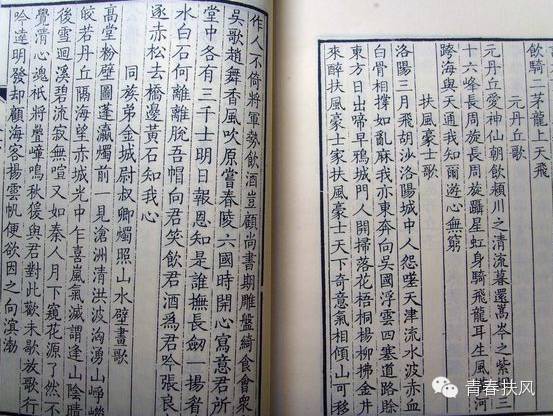 飲騎二茅龍上天飛
元丹丘歌
元丹丘愛神仙朝飲潁川之清流暮還嵩岑之紫煙三
十六峰長周旋長周旋躡星虹身騎飛龍耳生風橫河
跨海與天通我知爾遊心無窮
扶風豪士歌
洛陽三月飛胡沙洛陽城中人怨嗟天津流水波赤血
白骨相撐如亂麻我亦東奔向吳國浮雲四塞道路賒
東方日出啼早鴉城門人開掃落花梧桐楊柳拂金井
來醉扶風豪士家扶風豪士天下奇意氣相傾山可移
作人不倚將軍勢飲酒豈顧尚書期雕盤綺食會衆
吳歌趙舞香風吹原嘗春陵六國時開心寫意君所
堂中各有三千士明日報恩知是誰撫長劍一揚眉
水白石何離離脫吾帽向君笑飲君酒爲君吟張良
逐赤松去橋邊黃石知我心
同族弟金城尉叔卿燭照山水壁畫歌
高堂粉壁圖蓬瀛燭前一見滄洲清洪波洶湧山崢嶸
皎若丹丘隔海望赤城光中乍喜嵐氣滅謂逢山陰晴
後雪迴溪碧流寂無喧又如秦人月下窺花源了然不
覺清心魂祇將疊嶂鳴秋猨與君對此歡未歇放歌行
吟達明發却顧海客揚雲帆便欲因之向溟渤
青春扶风